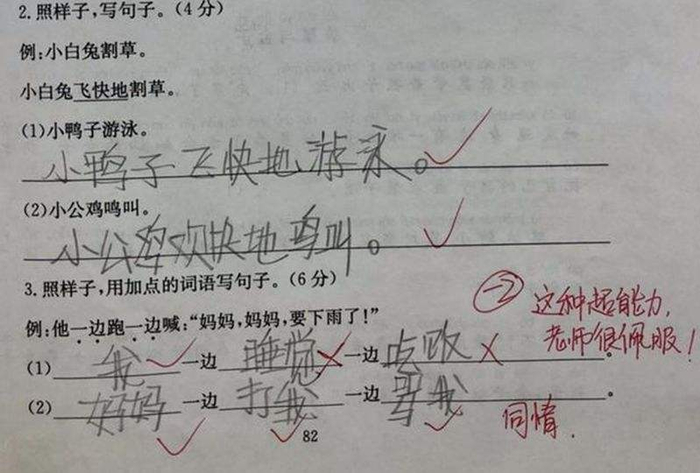 2.照样子,写句子。(4分)
例:小白兔割草。
小白兔飞快地割草。
(1)小鸭子游泳。
小鸭子飞快地游泳。
(2)小公鸡鸣叫。
小公鸡欢快地鸣叫。
3.照样子,用加点的词语写句子。(6分)
例:他一边跑一边喊:“妈妈,妈妈,要下雨了!”
(1) 我 一边 睡觉 一边 吃饭 。
(2) 妈妈 一边 打我 一边 骂我 。
-2
这种超能力,
老师很佩服!
同情.
82